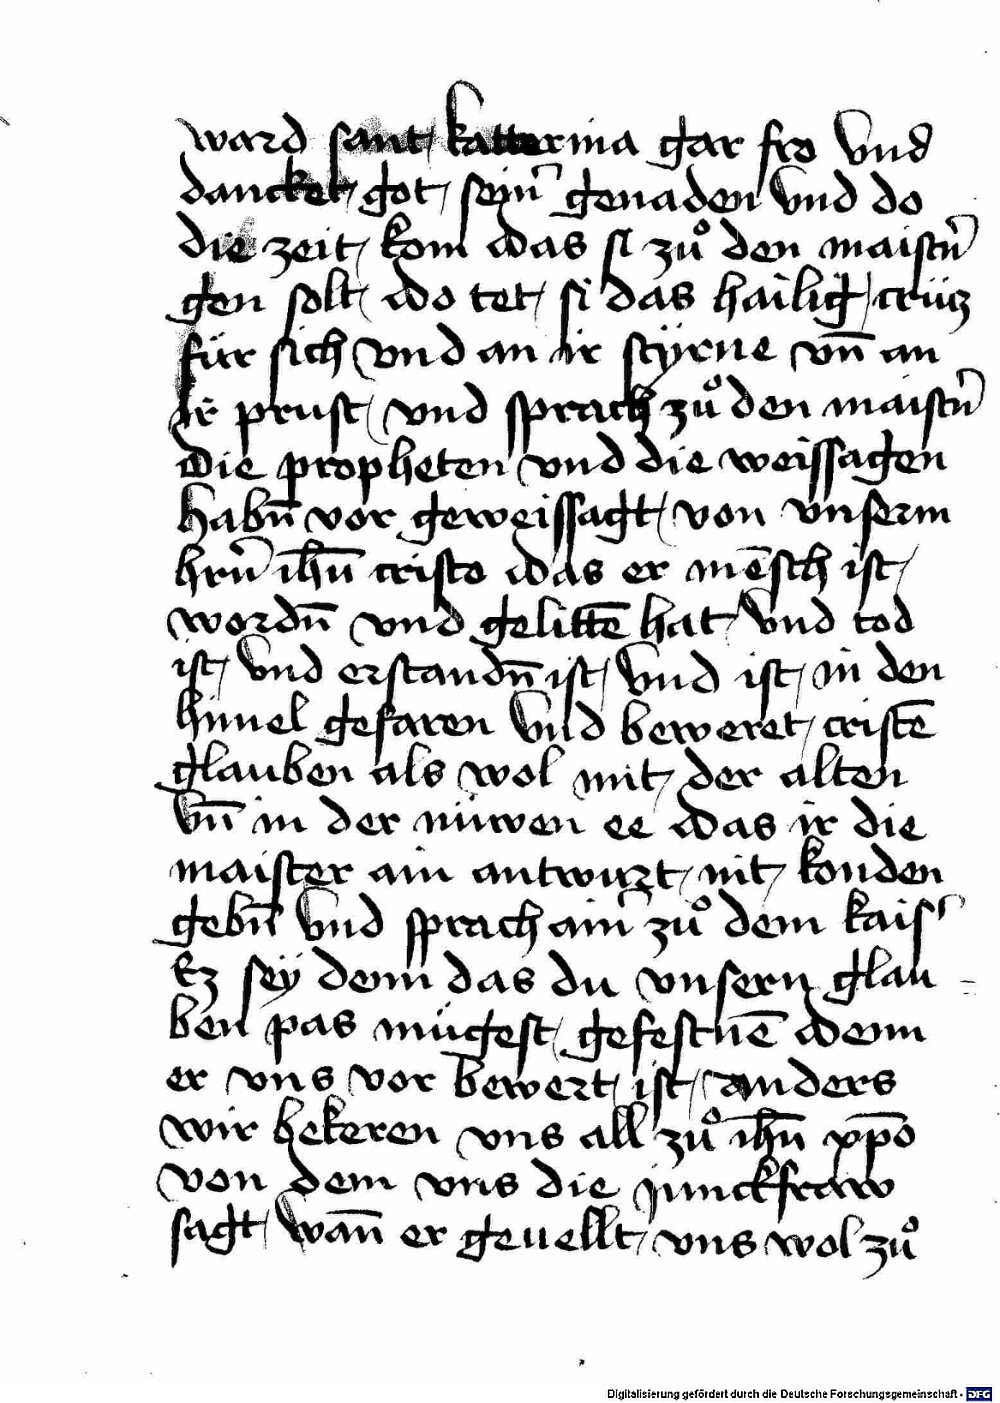 ward sant katterina gar fro vnd
dancket got sein̄ genaden vnd do
die zeit kom das si zuͦ den maistn̄
gen solt do tet si das hailig crücz
für sich vnd an ir styrne vn̄ an
ir prust vnd sprach zuͦ den maistn̄
Die propheten vnd die weissagen
habn̄ vor geweissagt von vnserm
hrn̄ ihū cristo das er mēsch ist
wordn̄ vnd gelittē hat vnd tod
ist vnd erstandn̄ ist vnd ist in den
himel gefaren vnd beweret cristē
glauben als wol mit der alten
vn̄ in der nüwen ee das ir die
maister ain antwurt nit konden
gebn̄ vnd sprach ain̄ zuͦ dem kais̓
Ez seÿ denn das du vnsern glau
ben pas mügest gefestnē denn
er vns vor bewert ist anders
wir bekeren vns all zuͦ ihū xp̄o
von dem vns die junckfraw
sagt wan̄ er geuellt vns wol zuͦ
Digitalisierung gefördert durch die Deutsche Forschungsgemeinschaft - DFG